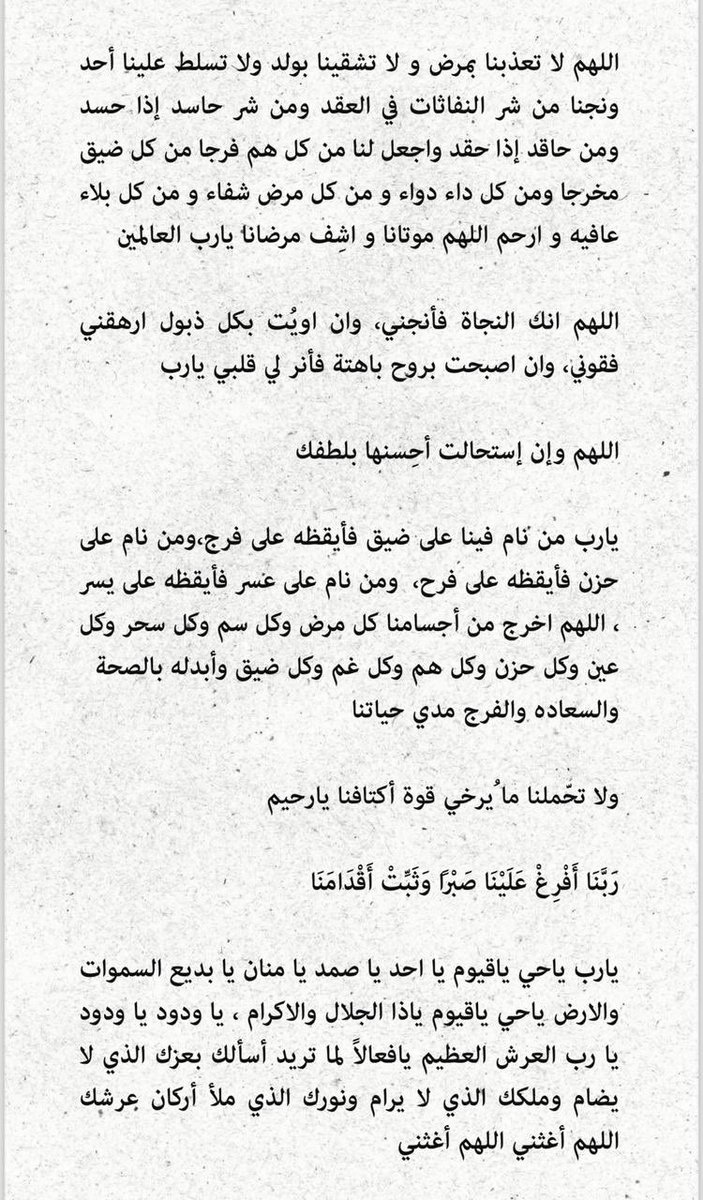 اللهم لا تعذبنا بمرض و لا تشقينا بولد ولا تسلط علينا أحد
ونجنا من شر النفاثات في العقد ومن شر حاسد إذا حسد
ومن حاقد إذا حقد واجعل لنا من كل هم فرجا من كل ضيق
مخرجا ومن كل داء دواء و من كل مرض شفاء و من كل بلاء
عافيه و ارحم اللهم موتانا و اشِف مرضانا يارب العالمين
اللهم انك النجاة فأنجني، وان اويُت بكل ذبول ارهقني
فقوني، وان اصبحت بروح باهتة فأنر لي قلبي يارب
اللهم وإن إستحالت أحِسنها بلطفك
يارب من نام فينا على ضيق فأيقظه على فرج،ومن نام على
حزن فأيقظه على فرح، ومن نام على عسر فأيقظه على يسر
، اللهم اخرج من أجسامنا كل مرض وكل سم وكل سحر وكل
عين وكل حزن وكل هم وكل غم وكل ضيق وأبدله بالصحة
والسعاده والفرج مدي حياتنا
ولا تحّملنا ما ُيرخي قوة أكتافنا يارحيم
رَبَّنَا أَفْرِغْ عَلَيْنَا صَبْرًا وَثَبِّتْ أَقْدَامَنَا
يارب ياحي ياقيوم يا احد يا صمد يا منان يا بديع السموات
والارض ياحي ياقيوم ياذا الجلال والاكرام ، يا ودود يا ودود
يا رب العرش العظيم يافعالاً لما تريد أسألك بعزك الذي لا
يضام وملكك الذي لا يرام ونورك الذي ملأ أركان عرشك
اللهم أغثني اللهم أغثني